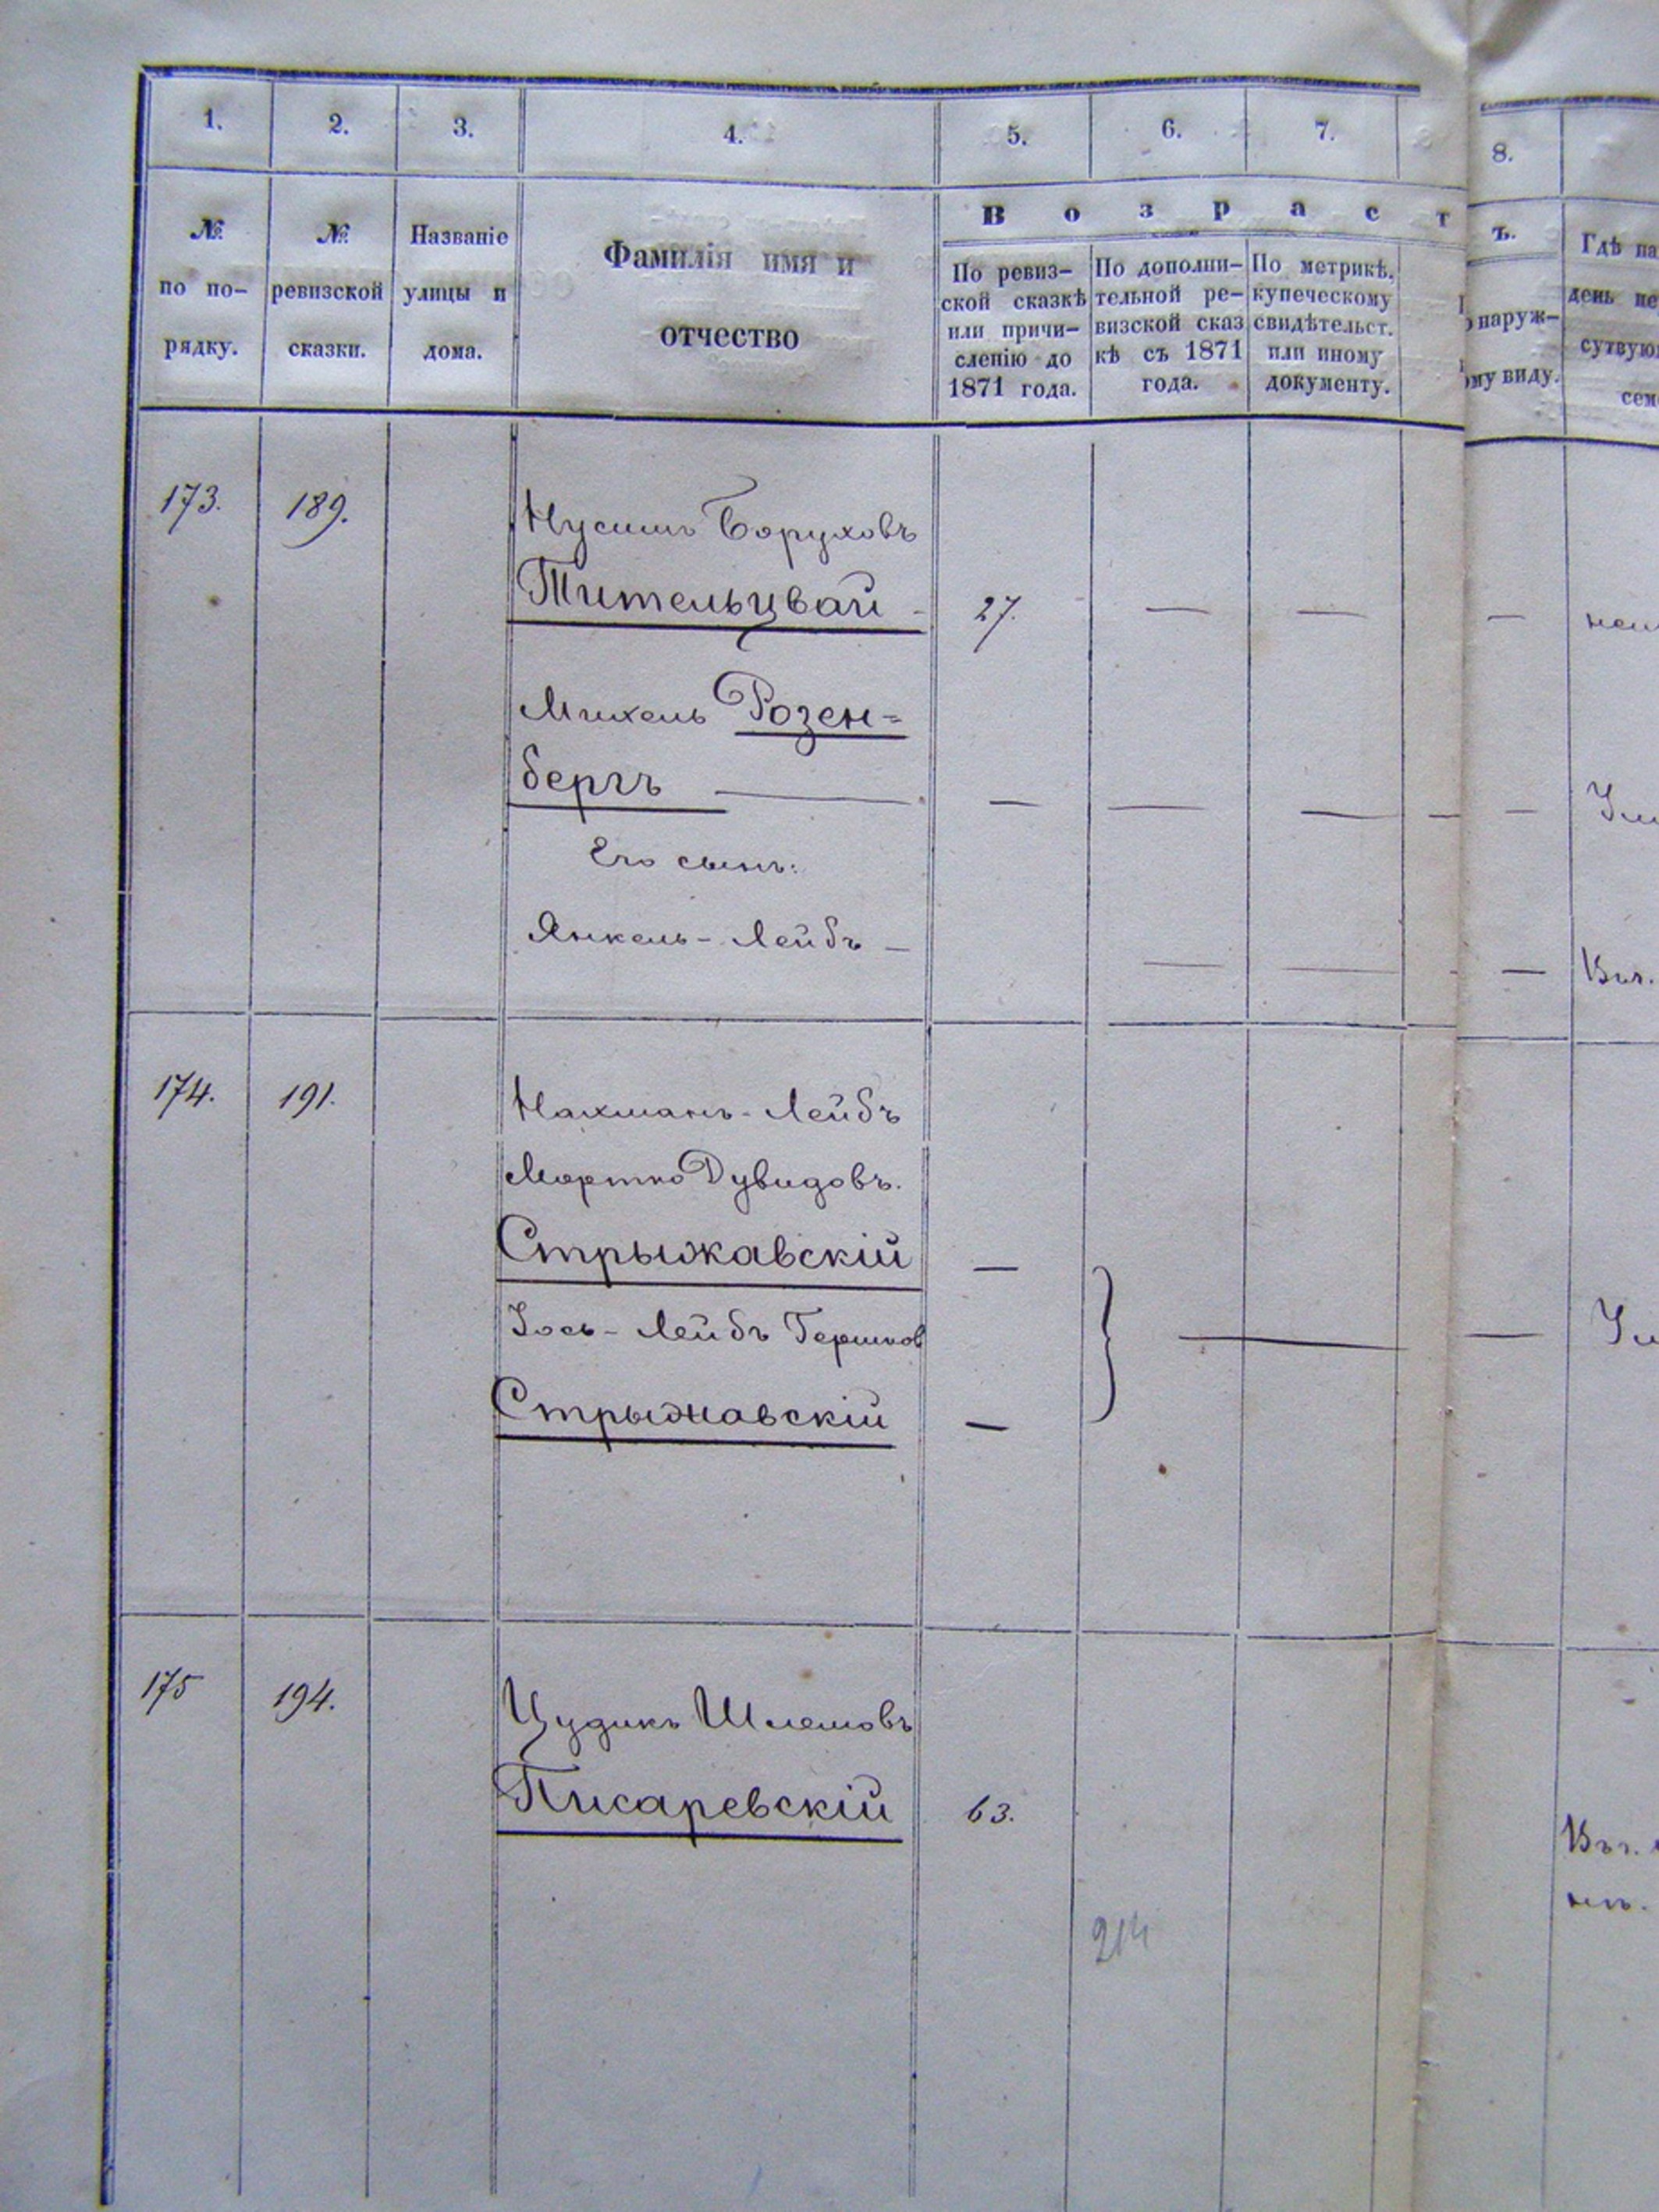 1. 2. 3. 4. 5. 6. 7. 8.
№ по по-рядку.
№ ревизской сказки.
Названіе улицы и дома.
Фамилія имя и
отчество
Возраст
ъ.
По ревиз-
ской сказкѣ
или причи-
сленію до
1871 года.
По дополни-
тельной ре-
визской сказ
кѣ съ 1871
года.
По метрикѣ,
купеческому
свидѣтельст.
или иному
документу.
наруж-
ому виду.
Гдѣ на
день не
сутвую
сем
173. 189. Нусимъ Боруховъ
Тительцвай - 27. — — —
Михель Розен=
бергъ — — — — — —
Его сынъ:
Янкель-Лейбъ — — — — Въ.
174. 191. Нахманъ-Лейбъ
Мортко Дувидовъ.
Стрыжавскій —
Іось-Лейбъ Гершков
Стрыжавскій —
175 194. Цудикъ Шлемовъ
Писаревскій 63.
214